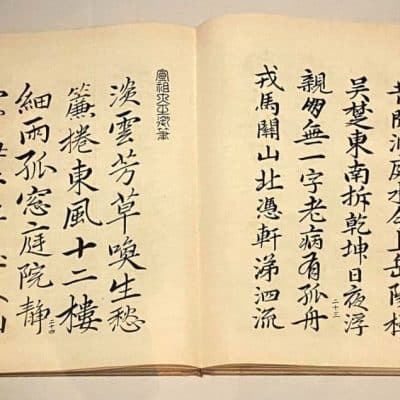 昔聞洞庭水今上岳陽樓
吳楚東南拆乾坤日夜浮
親朋無一字老病有孤舟
戎馬關山北憑軒涕泗流
二十三
宣祖大王御筆
淡雲芳草喚生愁
簾捲東風十二樓
細雨孤窓庭院靜
二十四